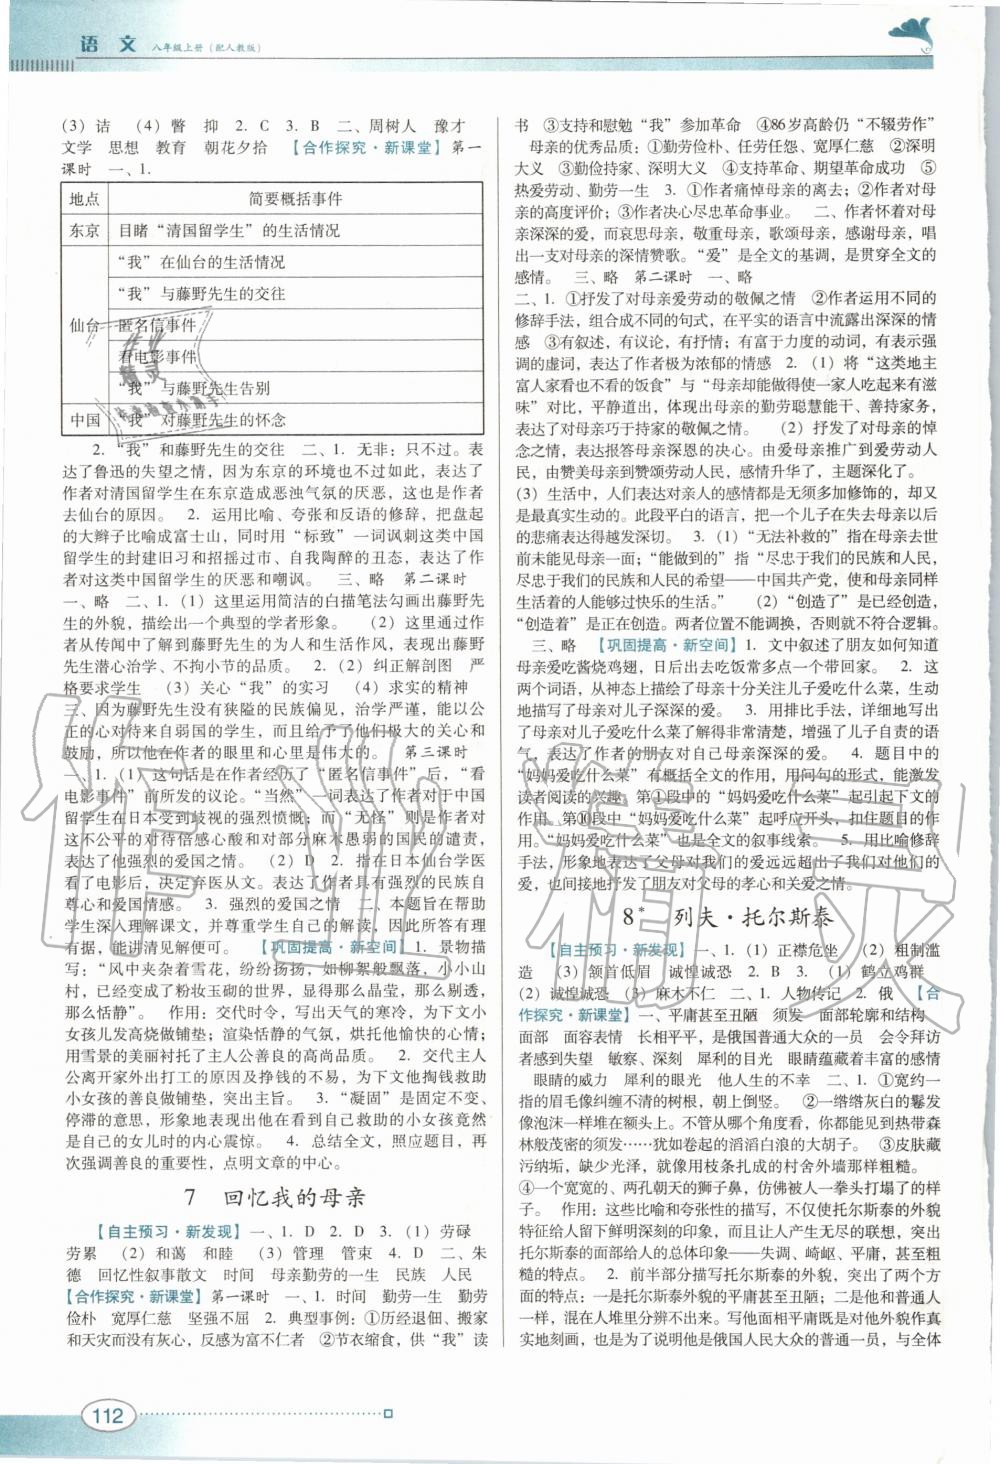 语 文 八年级上册（配人教版）
(3) 诘 (4) 瞥 抑 2. C 3. B 二、周树人 豫才
文学 思想 教育 朝花夕拾 【合作探究·新课堂】第一
课时 一、1.
地点 简要概括事件
东京 目睹“清国留学生”的生活情况
仙台 “我”在仙台的生活情况
“我”与藤野先生的交往
匿名信事件
看电影事件
“我”与藤野先生告别
中国 “我”对藤野先生的怀念
2. “我”和藤野先生的交往 二、1. 无非：只不过。表
达了鲁迅的失望之情，因为东京的环境也不过如此，表达了
作者对清国留学生在东京造成恶浊气氛的厌恶，这也是作者
去仙台的原因。 2. 运用比喻、夸张和反语的修辞，把盘起
的大辫子比喻成富士山，同时用“标致”一词讽刺这类中国
留学生的封建旧习和招摇过市、自我陶醉的丑态，表达了作
者对这类中国留学生的厌恶和嘲讽。 三、略 第二课时
一、略 二、1. (1) 这里运用简洁的白描笔法勾画出藤野先
生的外貌，描绘出一个典型的学者形象。 (2) 这里通过作
者从传闻中了解到藤野先生的为人和生活作风，表现出藤野
先生潜心治学、不拘小节的品质。 2. (1) 纠正解剖图 严
格要求学生 (3) 关心“我”的实习 (4) 求实的精神
三、因为藤野先生没有狭隘的民族偏见，治学严谨，能以公
正的心对待来自弱国的学生，而且给予了他们极大的关心和
鼓励，所以他在作者的眼里和心里是伟大的。 第三课时
一、1. (1) 这句话是在作者经历了“匿名信事件”后，“看
电影事件”前所发的议论。“当然”一词表达了作者对于中国
留学生在日本受到歧视的强烈愤慨；而“无怪”则是作者对
这不公平的对待倍感心酸和对部分麻木愚弱的国民的谴责，
表达了他强烈的爱国之情。 (2) D 2. 指在日本仙台学医
看了电影后，决定弃医从文。表达了作者具有强烈的民族自
尊心和爱国情感。 3. 强烈的爱国之情 二、本题旨在帮助
学生深入理解课文，并尊重学生自己的解读，因此所答有理
有据，能讲清见解便可。 【巩固提高·新空间】1. 景物描
写：“风中夹杂着雪花，纷纷扬扬，如柳絮般飘落，小小山
村，已经变成了粉妆玉砌的世界，显得那么晶莹，那么剔透，
那么恬静”。 作用：交代时令，写出天气的寒冷，为下文小
女孩儿发高烧做铺垫；渲染恬静的气氛，烘托他愉快的心情；
用雪景的美丽衬托了主人公善良的高尚品质。 2. 交代主人
公离开家外出打工的原因及挣钱的不易，为下文他掏钱救助
小女孩的善良做铺垫，突出主旨。 3. “凝固”是固定不变、
停滞的意思，形象地表现出他在看到自己救助的小女孩竟然
是自己的女儿时的内心震惊。 4. 总结全文，照应题目，再
次强调善良的重要性，点明文章的中心。
7 回忆我的母亲
【自主预习·新发现】一、1. D 2. D 3. (1) 劳碌
劳累 (2) 和蔼 和睦 (3) 管理 管束 4. D 二、朱
德 回忆性叙事散文 时间 母亲勤劳的一生 民族 人民
【合作探究·新课堂】第一课时 一、1. 时间 勤劳一生 勤劳
俭朴 宽厚仁慈 坚强不屈 2. 典型事例：①历经退佃、搬家
和天灾而没有灰心，反感为富不仁者 ②节衣缩食，供“我”读
书 ③支持和慰勉“我”参加革命 ④86岁高龄仍“不辍劳作”
母亲的优秀品质：①勤劳俭朴、任劳任怨、宽厚仁慈 ②深明
大义 ③勤俭持家、深明大义 ④支持革命、期望革命成功 ⑤
热爱劳动、勤劳一生 3. ①作者痛悼母亲的离去；②作者对母
亲的高度评价；③作者决心尽忠革命事业。 二、作者怀着对母
亲深深的爱，而哀思母亲，敬重母亲，歌颂母亲，感谢母亲，唱
出一支对母亲的深情赞歌。“爱”是全文的基调，是贯穿全文的
感情。 三、略 第二课时 一、略
二、1. ①抒发了对母亲爱劳动的敬佩之情 ②作者运用不同的
修辞手法，组合成不同的句式，在平实的语言中流露出深深的情
感 ③有叙述，有议论，有抒情；有富于力度的动词，有表示强
调的虚词，表达了作者极为浓郁的情感 2. (1) 将“这类地主
富人家看也不看的饭食”与“母亲却能做得使一家人吃起来有滋
味”对比，平静道出，体现出母亲的勤劳聪慧能干、善持家务，
表达了对母亲巧于持家的敬佩之情。 (2) 抒发了对母亲的悼
念之情，表达报答母亲深恩的决心。由爱母亲推广到爱劳动人
民，由赞美母亲到赞颂劳动人民，感情升华了，主题深化了。
(3) 生活中，人们表达对亲人的感情都是无须多加修饰的，却又
是最真实生动的。此段平白的语言，把一个儿子在失去母亲以后
的悲痛表达得越发深切。 3. (1) “无法补救的”指在母亲去世
前未能见母亲一面；“能做到的”指“尽忠于我们的民族和人民，
尽忠于我们的民族和人民的希望——中国共产党，使和母亲同样
生活着的人能够过快乐的生活。” (2) “创造了”是已经创造，
“创造着”是正在创造。两者位置不能调换，否则就不符合逻辑。
三、略 【巩固提高·新空间】1. 文中叙述了朋友如何知道
母亲爱吃酱烧鸡翅，日后出去吃饭常多点一个带回家。 2. 这
两个词语，从神态上描写了母亲十分关注儿子爱吃什么菜，生动
地描写了母亲对儿子深深的爱。 3. 用排比手法，详细地写出
了母亲对儿子爱吃什么菜了解得非常清楚，增强了儿子自责的语
气，表达了作者的朋友对自己母亲深深的爱。 4. 题目中的
“妈妈爱吃什么菜”有概括全文的作用，用问句的形式，能激发
读者阅读的兴趣 第①段中的“妈妈爱吃什么菜”起引起下文的
作用。第⑩段中“妈妈爱吃什么菜”起呼应开头，扣住题目的作
用。“妈妈爱吃什么菜”也是全文的叙事线索。 5. 用比喻修辞
手法，形象地表达了父母对我们的爱远远超出了我们对他们的
爱，也间接地抒发了朋友对父母的孝心和关爱之情。
8* 列夫·托尔斯泰
【自主预习·新发现】一、1. (1) 正襟危坐 (2) 粗制滥
造 (3) 颔首低眉 诚惶诚恐 2. B 3. (1) 鹤立鸡群
(2) 诚惶诚恐 (3) 麻木不仁 二、1. 人物传记 2. 俄 【合
作探究·新课堂】一、平庸甚至丑陋 须发 面部轮廓和结构
面部 面容表情 长相平平，是俄国普通大众的一员 会令拜访
者感到失望 敏察、深刻 犀利的目光 眼睛蕴藏着丰富的感情
眼睛的威力 犀利的眼光 他人生的不幸 二、1. ①宽约一
指的眉毛像纠缠不清的树根，朝上倒竖。 ②一绺绺灰白的鬈发
像泡沫一样堆在额头上。不管从哪个角度看，你都能见到热带森
林般茂密的须发……犹如卷起的滔滔白浪的大胡子。 ③皮肤藏
污纳垢，缺少光泽，就像用枝条扎成的村舍外墙那样粗糙。
④一个宽宽的、两孔朝天的狮子鼻，仿佛被人一拳头打塌了的样
子。 作用：这些比喻和夸张性的描写，不仅使托尔斯泰的外貌
特征给人留下鲜明深刻的印象，而且让人产生无尽的联想，突出
托尔斯泰的面部给人的总体印象——失调、崎岖、平庸，甚至粗
糙的特点。 2. 前半部分描写托尔斯泰的外貌，突出了两个方
面的特点：一是托尔斯泰外貌的平庸甚至丑陋；二是他和普通人
一样，混在人堆里分辨不出来。写他面相平庸既是对他外貌作真
实地刻画，也是为了说明他是俄国人民大众的普通一员，与全体
112
作业精灵